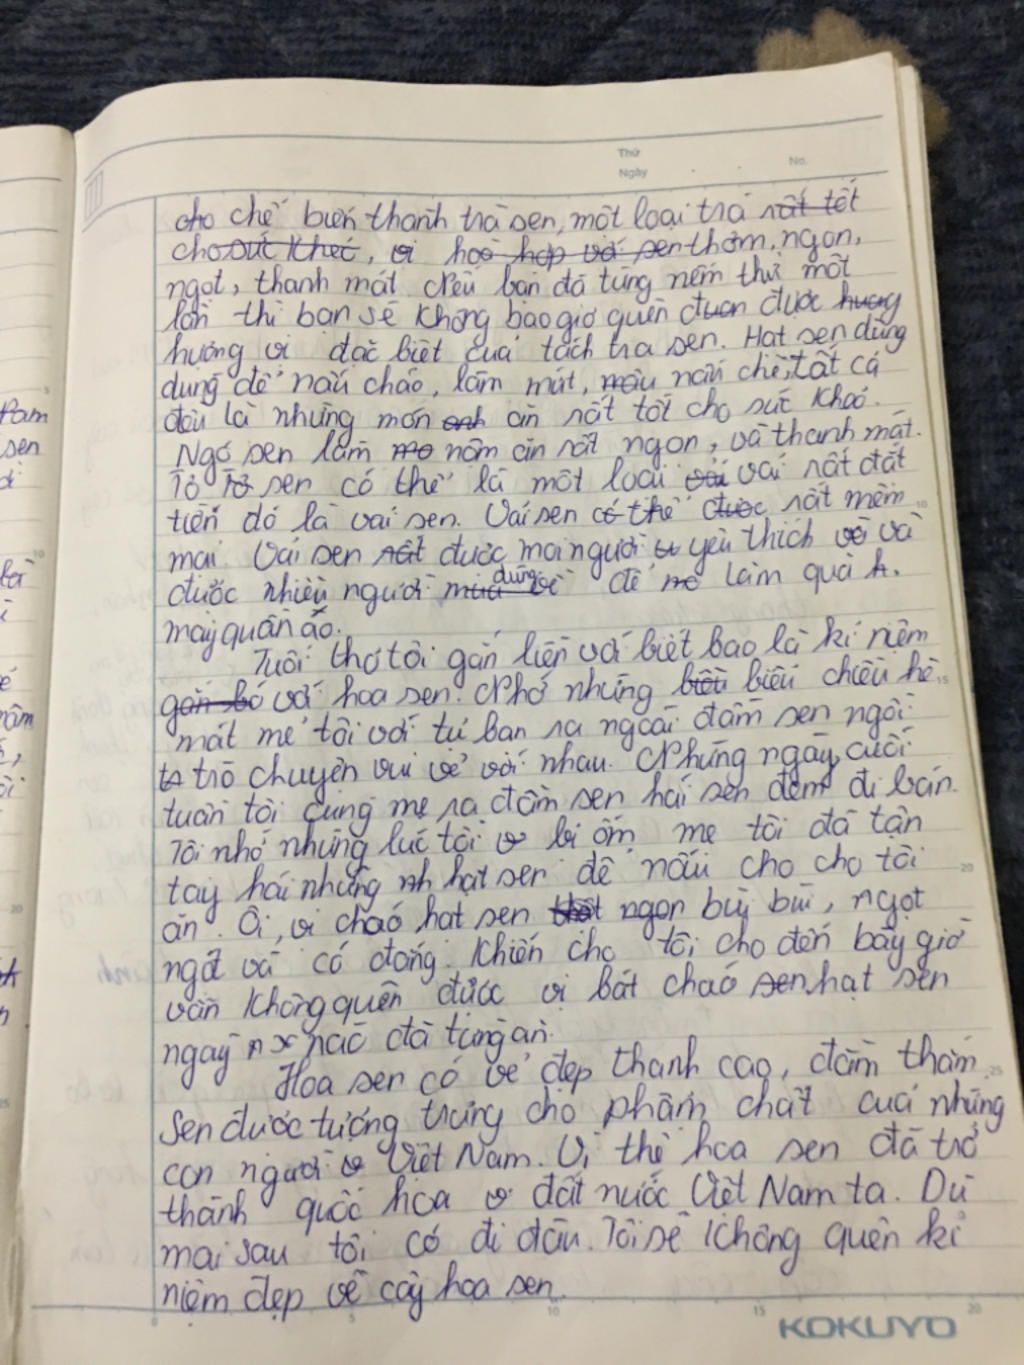 Thứ
Ngày
No.
cho chế biến thanh trà sen, một loại trà rất tốt
cho sức khẻo, vì hoà hợp với sen thơm, ngon,
ngọt, thanh mát. Nếu bạn đã từng nếm thử một
lần thì bạn sẽ không bao giờ quên được hương
hương vị đặc biệt của tách trà sen. Hạt sen dùng
dụng để nấu cháo, làm mứt, nấu chè, tất cả
đều là những món ăn rất tốt cho sức khoẻ.
Ngó sen làm nộm ăn rất ngon, và thanh mát.
Tơ Tơ sen có thể là một loại vải rất đắt
tiền đó là vải sen. Vải sen có thể được rất mềm
mại Vải sen rất được mọi người yêu thích và
được nhiều người mua dùng về để làm quà
may quần áo.
Tuổi thơ tôi gắn liền với biết bao là kỉ niệm
gắn bó với hoa sen. Nhớ những biểu biểu chiều hè
mát mẻ tôi với tụ bạn ra ngoài đầm sen ngồi
trò chuyện vui vẻ với nhau. Những ngày cuối
tuần tôi cùng mẹ ra đầm sen hái sen đem đi bán.
Tôi nhớ những lúc tôi bị ốm mẹ tôi đã tận
tay hái những nh hạt sen để nấu cho cho tôi
ăn. Ôi, vị cháo hạt sen thật ngon bùi bùi, ngọt
ngọt và có đọng. Khiến cho tôi cho đến bây giờ
vẫn không quên được vị bát cháo sen hạt sen
ngày nào đã từng ăn.
Hoa sen có vẻ đẹp thanh cao, đằm thắm.
Sen được tượng trưng cho phẩm chất của những
con người Việt Nam. Vì thế hoa sen đã trở
thành quốc hoa đất nước Việt Nam ta. Dù
mai sau tôi có đi đâu. Tôi sẽ không quên kỉ
niệm đẹp về cây hoa sen.
KOKUYO